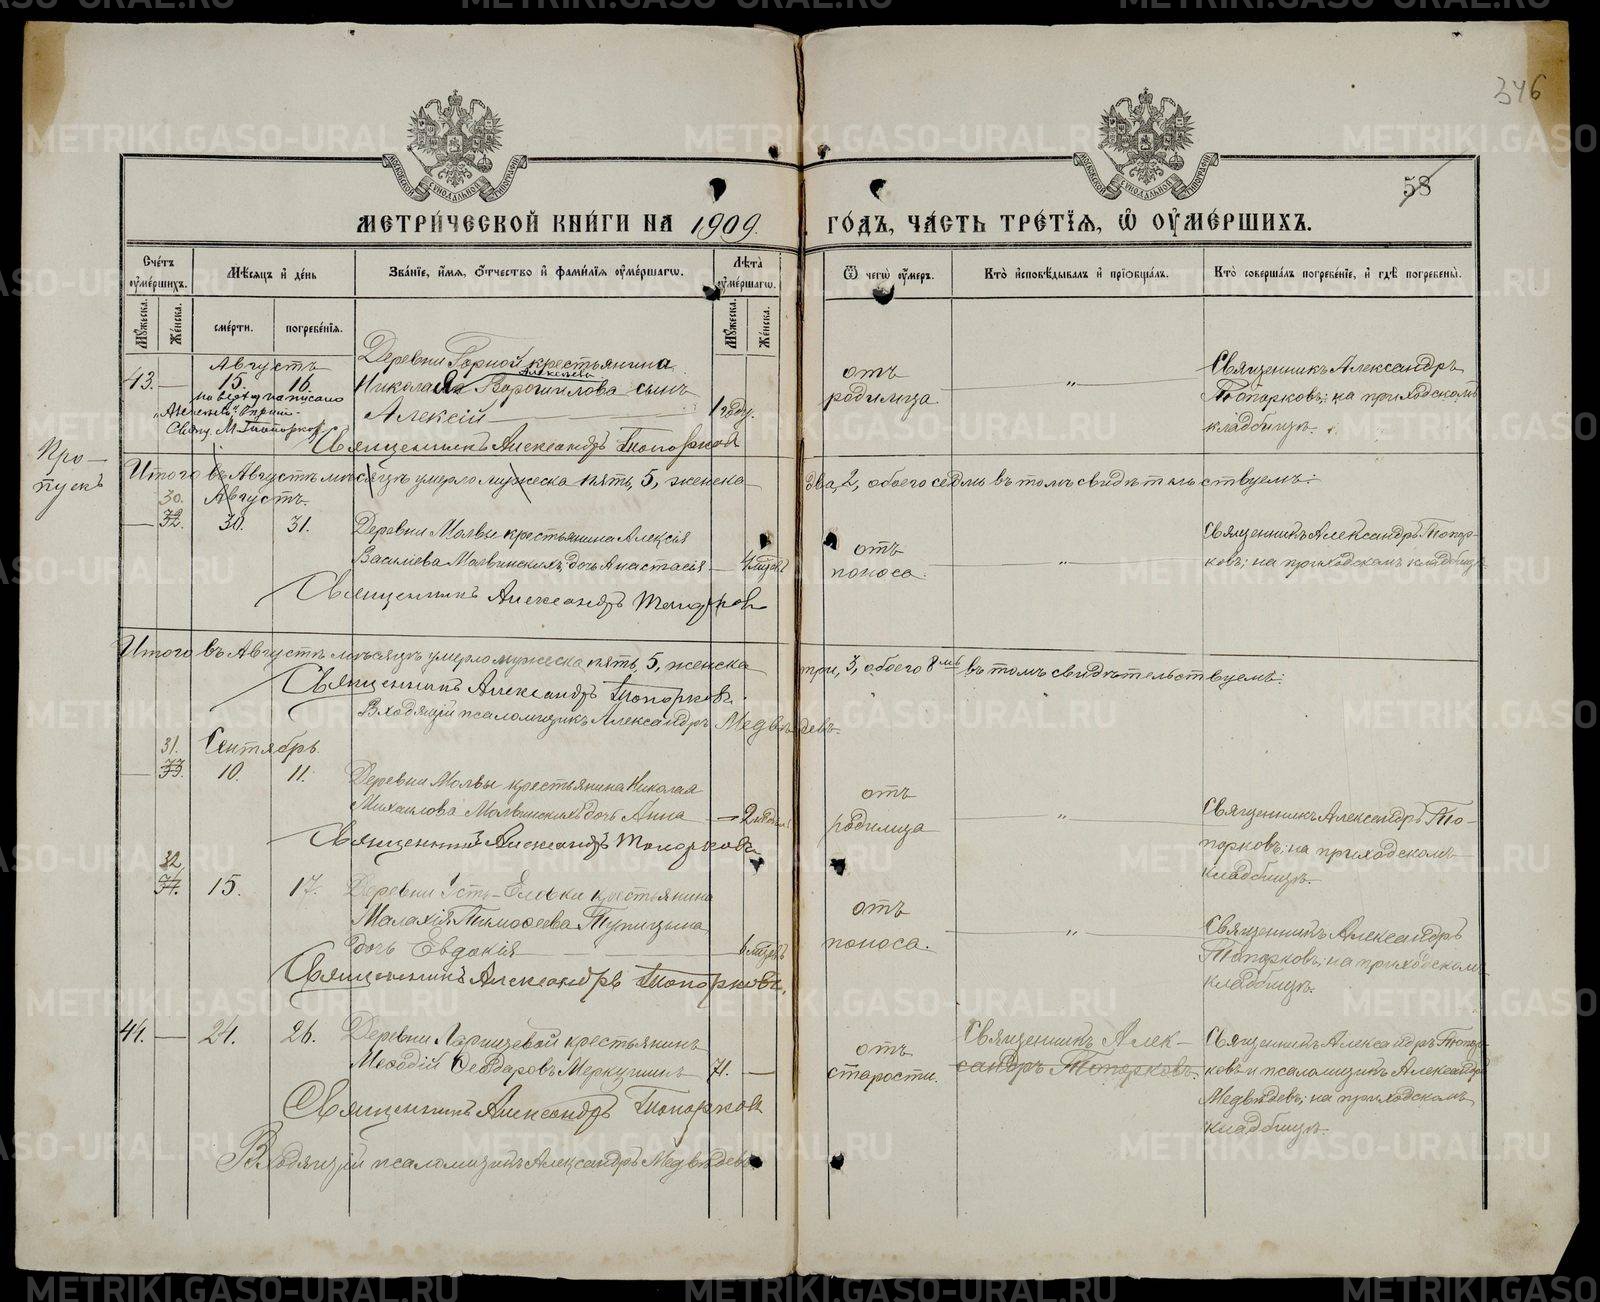 346
58
МЕТРИЧЕСКОЙ КНИГИ НА 1909. ГОДЪ, ЧАСТЬ ТРЕТІЯ, Ѿ ОУМЕРШИХЪ.
Счетъ оумершихъ.
Мужеска.
Женска.
Мѣсяцъ и день
смерти.
погребенія.
Званіе, имя, отчество и фамилія оумершагѡ.
Лѣта оумершагѡ.
Мужеска.
Женска.
Ѿ чегѡ оумеръ.
Кто исповѣдывалъ и пріобщалъ.
Кто совершалъ погребеніе, и гдѣ погребены.
Августъ
43. — 15. 16.
на верху написано
„Алексѣева“
Свящ. М. Топорков
Деревни Горной крестьянина
Алексѣева
Николая Ворошилова сынъ
Алексій — 1 году.
отъ
родимца.
„
Священникъ Александръ
Топорковъ; на приходскомъ
кладбищѣ.
Священникъ Александръ Топорков
Про-
пускъ
Итого въ Августѣ мѣсяцѣ умерло мужеска пять, 5, женска два, 2, обоего седмь въ томъ свидѣтельствуемъ:
Августъ.
30.
— 32. 30. 31.
Деревни Молвы крестьянина Алексія
Василіева Молвинскихъ дочь Анастасія — 4 мѣсяц.
отъ
поноса.
„
Священникъ Александръ Топор-
ковъ; на приходскомъ кладбищѣ
Священникъ Александръ Топорков
Итого въ Августѣ мѣсяцѣ умерло мужеска пять, 5, женска три, 3, обоего 8мь въ томъ свидѣтельствуемъ:
Священникъ Александръ Топорковъ.
В. ходящій псаломщикъ Александръ Медвѣдевъ.
Сентябрь.
31.
— 33. 10. 11.
Деревни Молвы крестьянина Николая
Михаилова Молвинскихъ дочь Анна — 2 недѣли
отъ
родимца
„
Священникъ Александръ То-
порковъ; на приходскомъ
кладбищѣ.
Священникъ Александръ Топорковъ
32
34. 15. 17.
Деревни Усть-Еловки крестьянина
Малахія Тимоѳеева Тупицына
дочь Евдокія — 6 мѣсяц.
отъ
поноса.
„
Священникъ Александръ
Топорковъ; на приходскомъ
кладбищѣ.
Священникъ Александръ Топорковъ.
44. — 24. 26.
Деревни Ларищевой крестьянинъ
Меѳодій Ѳеодоровъ Меркушинъ 71. —
отъ
старости.
Священникъ Алек-
сандръ Топорковъ.
Священникъ Александръ Топор-
ковъ и псаломщикъ Александръ
Медвѣдевъ; на приходскомъ
кладбищѣ.
Священникъ Александръ Топорков
В. ходящій псаломщикъ Александръ Медвѣдевъ
METRIKI.GASO-URAL.RU